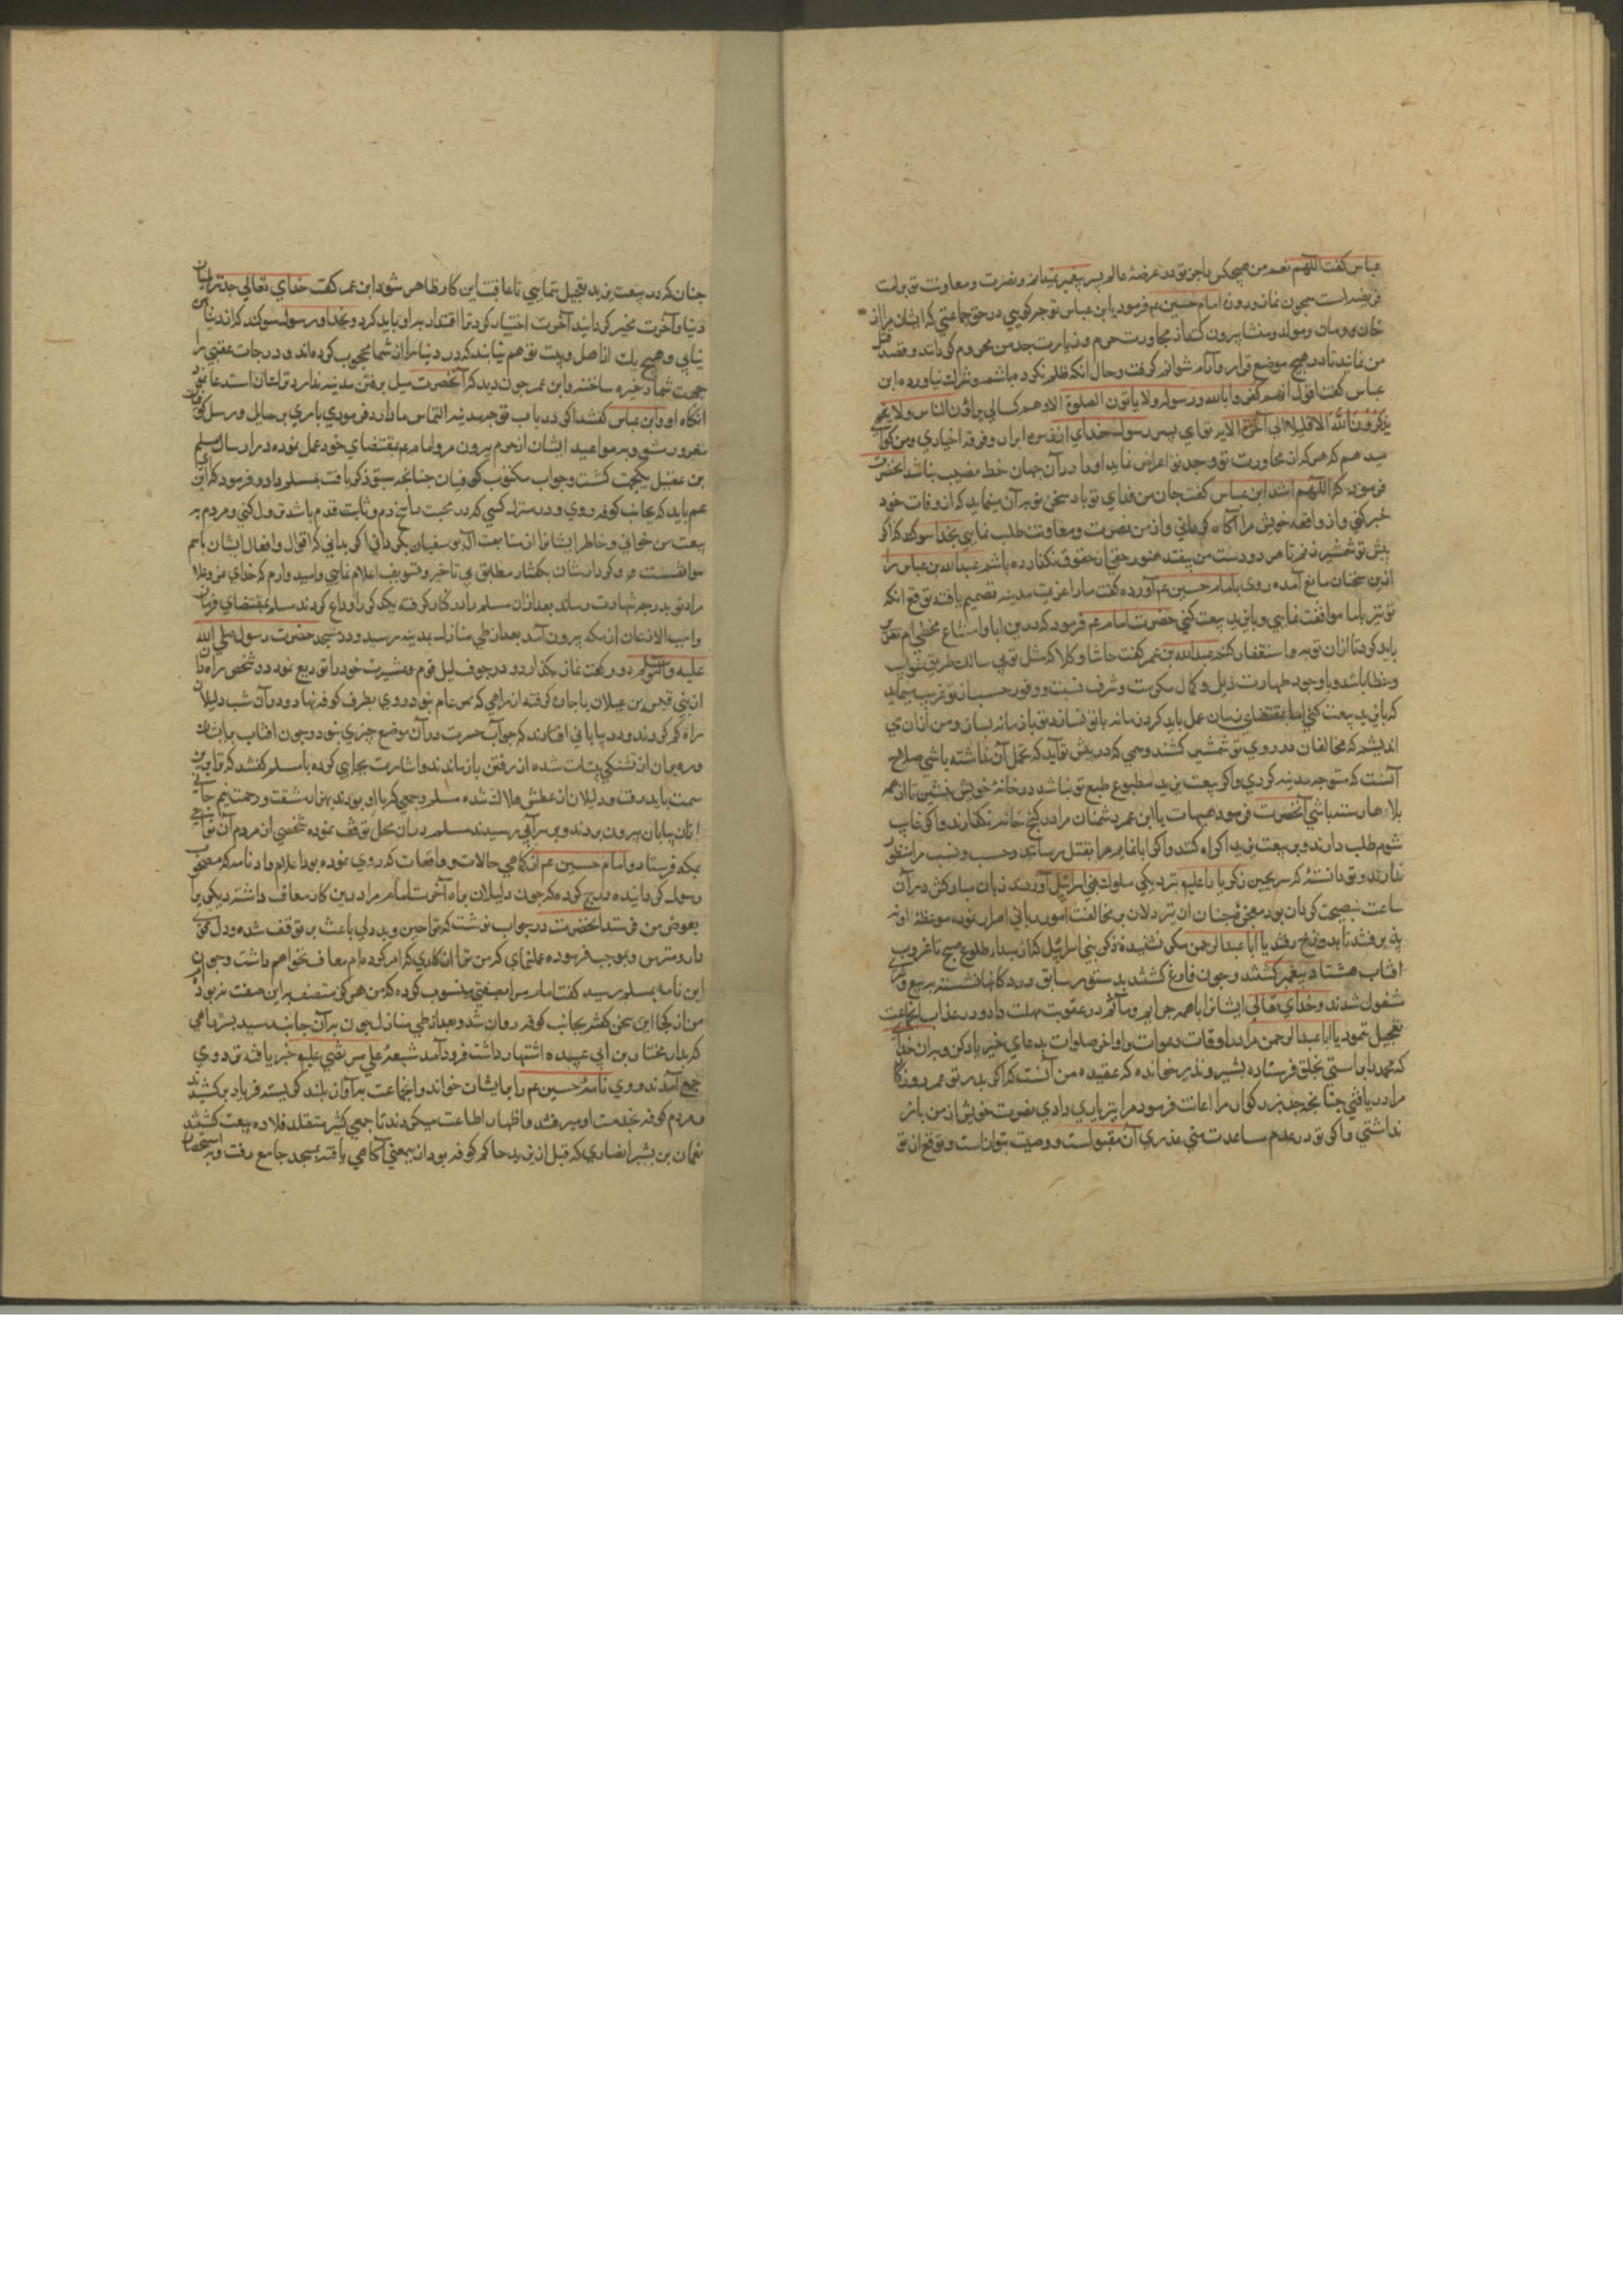 عباس گفت اللهم نعم من هیچکس را جز تو در عرصهٔ عالم پسر پیغمبر نمیدانم و نصرت و معاونت تو بر امت
فریضه است همچون نماز و روزه امام حسین عم فرمود یا بن عباس تو چه گویی در حق جماعتی که ایشان مرا از
خان و مان و مولد و منشا بیرون کنند از مجاورت حرم و زیارت جد من محروم گردانند و قصد قتل
من نمایند تا در هیچ موضع قرار و آرام نتوانم گرفت و حال آنکه ظلم نکرده باشم و شرک نیاورده ابن
عباس گفت اقول انهم کفروا بالله و رسوله ولا یاتون الصلوة الا وهم کسالی یراؤن الناس ولا
یذکرون الله الا قلیلا الی آخر الایه تو ای پسر رسول خدای از نفس ابرار و فرقه اخیاری و من گواهی
میدهم که هر که از مجاورت تو و جد تو اعراض نماید او را در آن جهان حظ و نصیب نباشد آنحضرت
فرمود که اللهم اشهد ابن عباس گفت جان من فدای تو باد سخن تو بر آن مینماید که از وفات خود
خبر کنی و از واقعه خویش مرا آگاه گردانی و از من نصرت و معاونت طلب نمایی بخدا سوگند که اگر
پیش تو شمشیر زنم تا هر دو دست من بیفتد هنوز حقی از حقوق نگذارده باشم عبدالله بن عباس را
ازین سخنان مانع آمده روی بامام حسین عم آورده گفت ما را عزیمت مدینه تصمیم یافته توقع آنکه
تو نیز با ما موافقت نمایی و با یزید بیعت کنی حضرت امام عم فرمود که درین ابا و امتناع مخطی ام
باید کرد تا از آن توبه و استغفار کنم عبدالله بن عمر گفت حاشا و کلا که مثل تویی سالک طریق ثواب
و خطا باشد و با وجود طهارت ذیل و کمال مکرمت و شرف نسبت و وفور حسب از تو غریب نماید
که با یزید بیعت کنی اما بمقتضای زمان عمل باید کرد زمانه با تو نسازد تو با زمانه بساز و من از آن می
اندیشم که مخالفان در روی تو شمشیر کشند و مهمی که در پیش تو آید که تحمل آن نداشته باشی صلاح
آنست که متوجه مدینه گردی و اگر بیعت یزید مطبوع طبع تو نباشد در خانهٔ خویش بنشین تا از همه
بلاها رسته باشی آنحضرت فرمود هیهات یا ابن عمر دشمنان مرا در کنج خانه نگذارند و اگر غایب
شوم طلب دارند و بر بیعت یزید اکراه کنند و اگر ابا نمایم مرا بقتل رسانند و حسب و نسب مرا منظور
ندارند و تو دانستهٔ که سر یحیی زکریا را علیهم نزد یکی ملوک بنی اسرائیل آوردند زبان مبارکش در آن
ساعت بنصیحت گردان بود
افتاب هشتاد پیغمبر کشتند و چون فارغ گشتند بدستور سابق در دکانها نشسته ببیع و شری
مشغول شدند و خدای تعالی ایشانرا با همه جرایم و مآثم در عقوبت مهلت داد و در عذاب آنجماعت
تعجیل ننمود یا ابا عبدالرحمن مرا در اوقات دعوات و اواخر صلوات بدعای خیر یاد کن و بدان خدای
که محمد را براستی بخلق فرستاده بشیر و نذیر خوانده که عقیده من آنست که اگر پدر تو عمر روزگار
مرا دریافتی چنانچه جد بزرگوار مرا اعانت فرمود مرا نیز یاری دادی نصرت خویش از من باز
نداشتی و اگر تو در عدم مساعدت منی عذری آن مقبولست و وصیت بتو آن است و توقع از تو
چنان که در بیعت یزید تعجیل ننمایی تا عاقبت این کار ظاهر شود ابن عمر گفت خدای تعالی جد ترا میان
دنیا و آخرت مخیر گردانید آخرت اختیار کرد ترا اقتدا بدو باید کرد و بخدا و رسول سوگند که از دنیا
نیابی و هیچ یک از اهل بیت تو هم نیابند که در دنیا را از شما محجوب کرده اند و درجات عقبی را
جهت شما ذخیره ساخته و ابن عمر چون دید که آنحضرت میل برفتن مدینه ندارد
آنگاه او و ابن عباس گفتند اگر در باب توجه مدینه التماس ما را رد فرمودی باری برسایل و رسل کوفیان
مغرور مشو و بر مواعید ایشان از حرم بیرون مرو امام عم بمقتضای خود عمل نموده در ارسال مسلم
بن عقیل یکجهت گشت و جواب مکتوب کوفیان چنانچه سبق ذکر یافت بمسلم داد و فرمود که ای ابن
عم باید که بجانب کوفه روی و در منزل کسی که در محبت راسخ دم و ثابت قدم باشد نزول کنی و مردم به
بیعت من خوانی و خاطر ایشانرا از متابعت آل بوسفیان بگردانی اگر بدانی که اقوال و افعال ایشان باهم
موافقست و کردار شان بگفتار مطابق بی تاخیر و تسویف اعلام نمایی و امیدوارم که خدای عز و علا
مرا و تو بدرجه شهادت رساند بعد از آن مسلم را در کنار گرفته یکدیگر را وداع کردند مسلم بمقتضای فرمان
واجب الاذعان از مکه بیرون آمد بعد از طی منازل بمدینه رسید و در مسجد حضرت رسول صلی الله
علیه و آله وسلم دو رکعت نماز بگذارد و در جوف لیل قوم و عشیرت خود را تودیع نمود و دو شخص راه دان
از بنی قیس بن عیلان باجاره گرفته از راهی که غیر عام بود روی بطرف کوفه نهاد و در آن شب دلیلان
راه گم کردند و در بیابانی افتادند که جو آب حسرت در آن موضع چیزی نبود و چون افتاب برآمد
و رهبران از تشنگی بی تاب شده از رفتن باز ماندند و اشارت بجایی کرده با مسلم گفتند که ترا برین
سمت باید رفت و دلیلان از عطش هلاک شده مسلم و جمعی که با او بودند بهزار مشقت و زحمت نیم جانی
از آن بیابان بیرون بردند و بر سر آبی رسیدند مسلم در آن محل توقف نموده شخصی از مردم آن نواحی
بمکه فرستاد و امام حسین عم از گاهی حالات و واقعات که روی نموده بود اعلام داد نامه که مصحوب
رسول گردانیده درج کرده که چون دلیلان براه آخرت امام مرا درین کار معاف داشته دیگری را
بعوض من فرستد آنحضرت در جواب نوشت که ترا جبن و بددلی باعث بر توقف شده و دل قوی
دار و مترس و بموجب فرموده عمل نمای که من ترا از کاری که امر کرده ام معاف نخواهم داشت و چون
این نامه بمسلم رسید گفت امام مرا بصفتی منسوب کرده که من هرگز متصف بر این صفت نبودم
من از کجا این سخن کجا پس بجانب کوفه روان شد و بعد از طی منازل چون بر آن جانب رسید بسرایی
که بدار مختار بن ابی عبیده اشتهار داشت فرود آمد شیعهٔ علی مرتضی علیه خبر یافته نزد وی
جمع آمدند و وی نامهٔ حسین عم را بر ایشان خواند و آنجماعت بر آواز بلند گریسته فریاد برکشیدند
و مردم کوفه بخدمت او میرفتند و اظهار اطاعت میکردند تا جمعی کثیر متقلد قلاده بیعت گشتند
نعمان بن بشیر انصاری که قبل از یزید حاکم کوفه بود از ین معنی آگاهی یافته بمسجد جامع رفت و بر